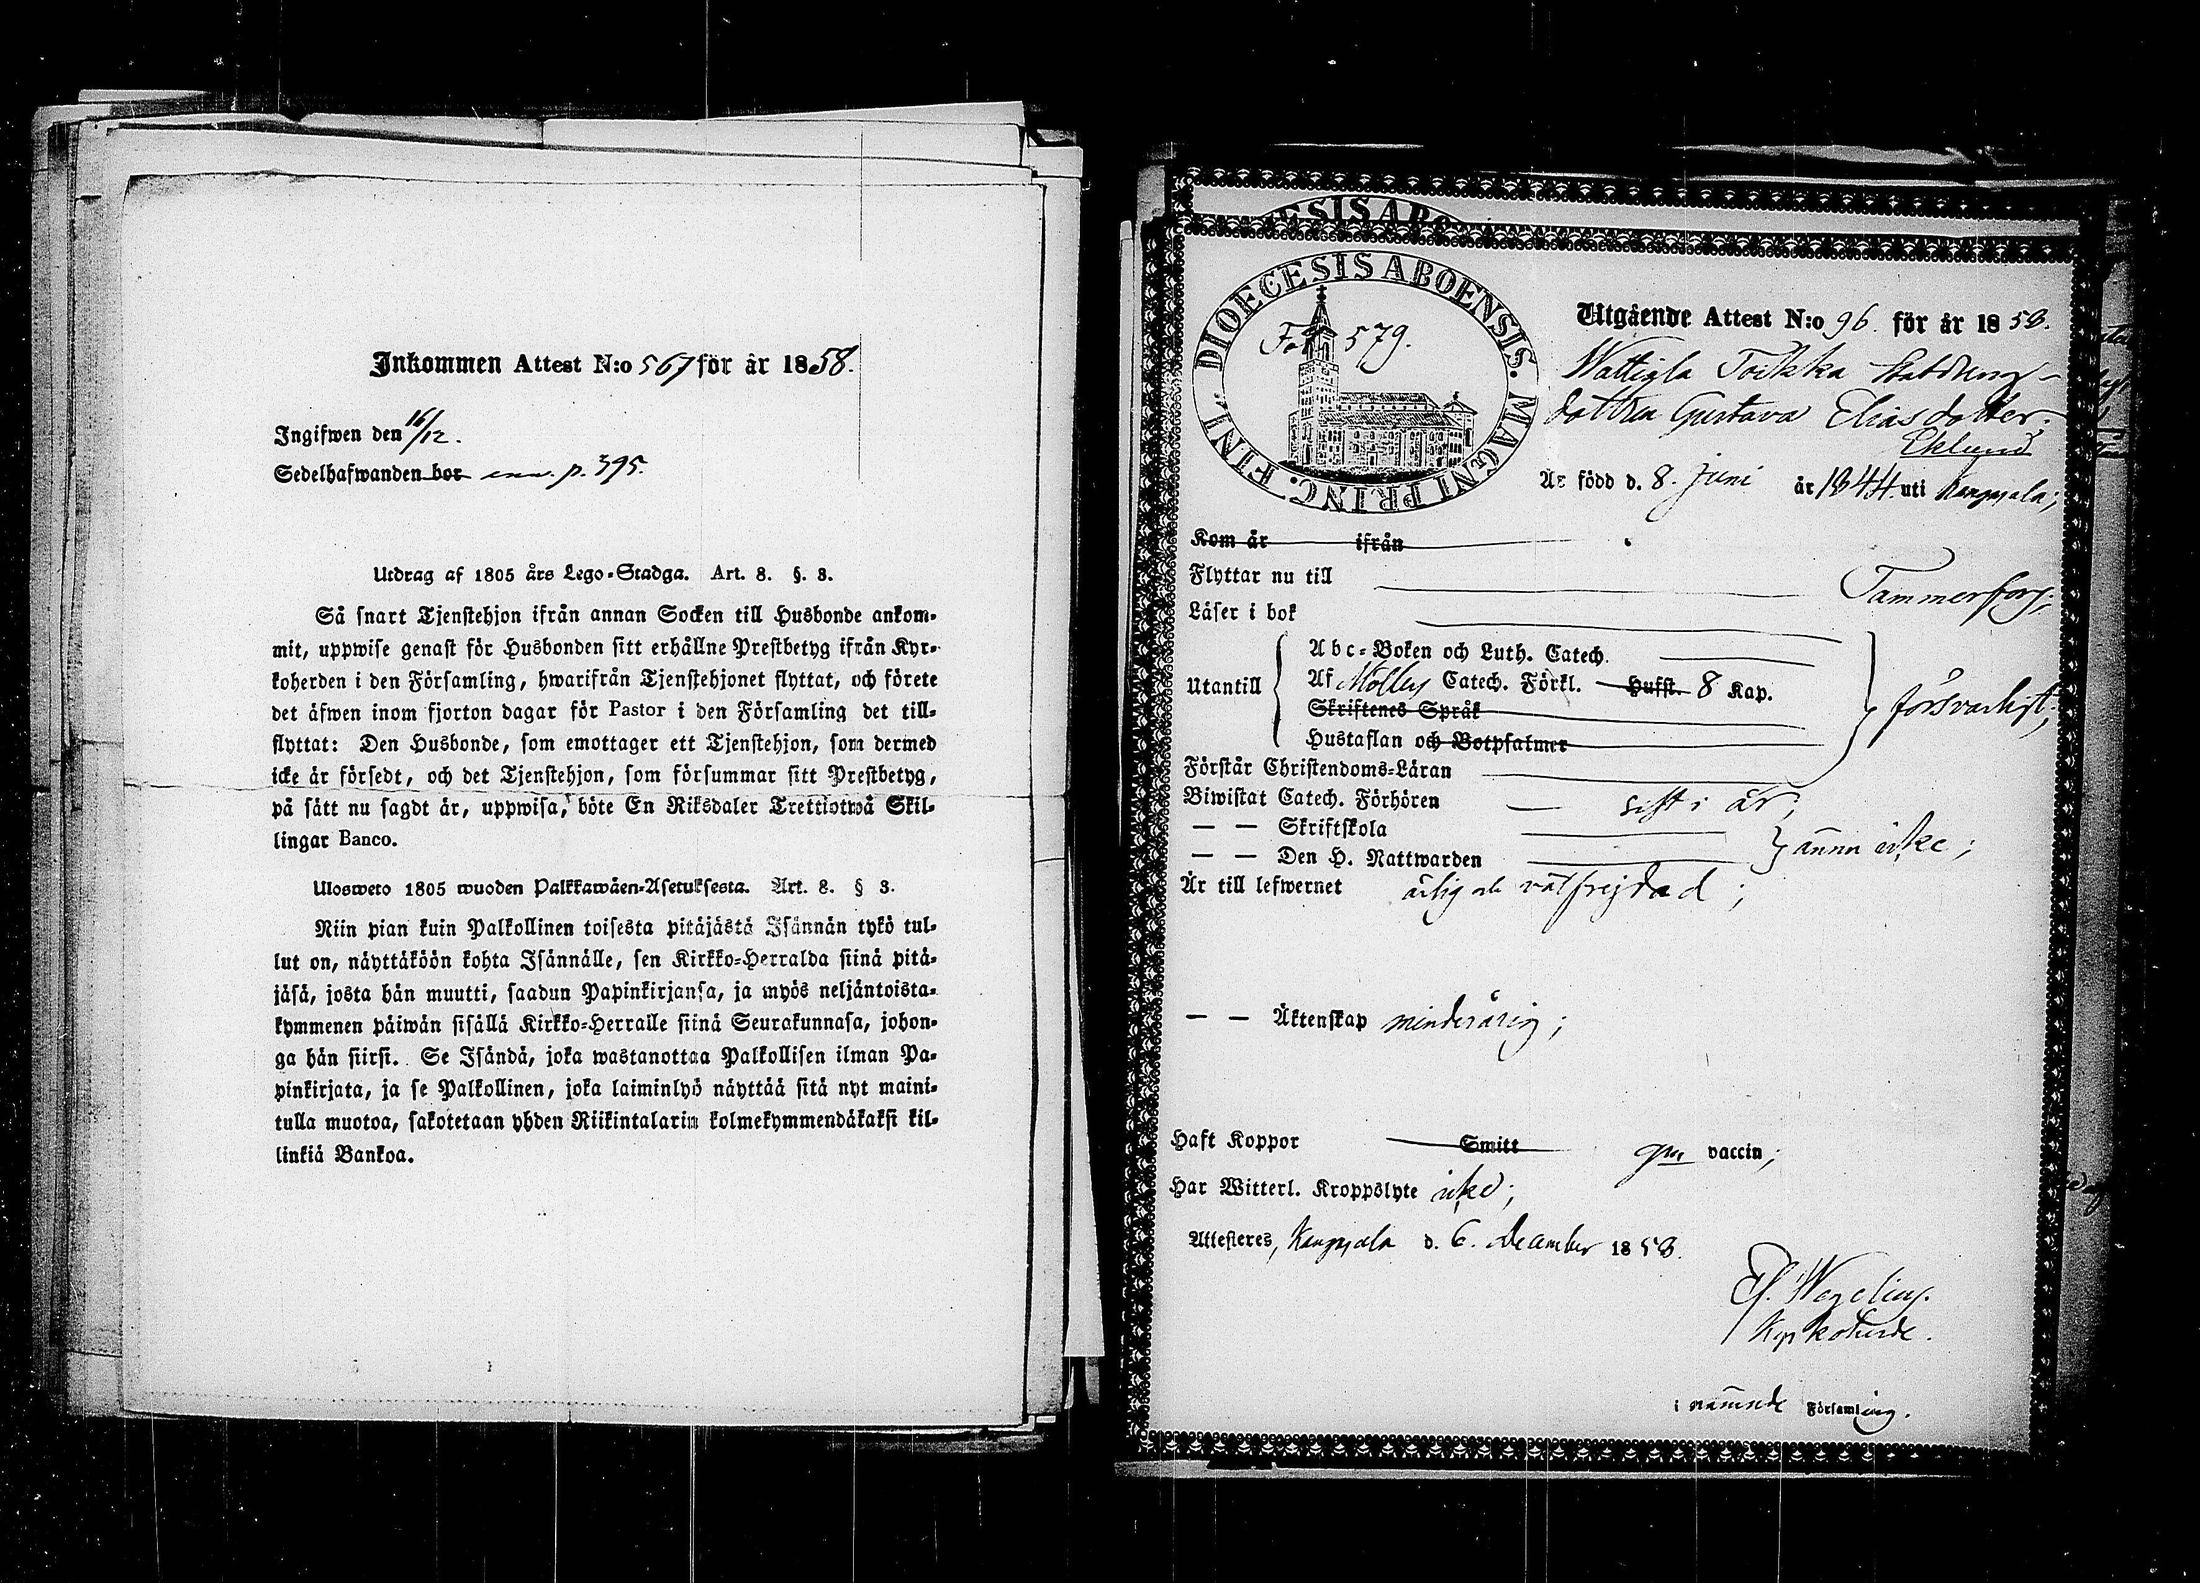 Inkommen Attest N:o 567 för år 1858.
Ingifwen den 16/12.
Sedelhafwanden bor p. 395.
Utdrag af 1805 års Lego-Stadga. Art. 8. §. 3.
Så snart Tjenstehjon ifrån annan Socken till Husbonde ankom-
mit, uppwise genast för Husbonden sitt erhållne Prestbetyg ifrån Kyr-
koherden i den Församling, hwarifrån Tjenstehjonet flyttat, och förete
det äfwen inom fjorton dagar för Pastor i den Församling det till-
flyttat: Den Husbonde, som emottager ett Tjenstehjon, som dermed
icke är försedt, och det Tjenstehjon, som försummar sitt Prestbetyg,
på sätt nu sagdt är, uppwisa, böte En Riksdaler Trettiotwå Skil-
lingar Banco.
Ulosweto 1805 wuoden Palkkawäen-Asetuksesta. Art. 8. § 3.
Niin pian kuin Palkollinen toisesta pitäjästä Isännän tykö tul-
lut on, näyttäköön kohta Isännälle, sen Kirkko-Herralda siinä pitä-
jäsä, josta hän muutti, saadun Papinkirjansa, ja myös neljäntoista-
kymmenen päiwän sisällä Kirkko-Herralle siinä Seurakunnasa, johon-
ga hän siirsi. Se Isändä, joka wastanottaa Palkollisen ilman Pa-
pinkirjata, ja se Palkollinen, joka laiminlyö näyttää sitä nyt maini-
tulla muotoa, sakotetaan yhden Riikintalarin kolmekymmendäkaksi kil-
linkiä Bankoa.
DIOECESIS ABOENSIS. MAGNI PRINC. FINL.
Fol. 579.
Utgående Attest N:o 96. för år 1858.
Wattigla Toikka
dottren Gustava Eliasdotter
Eklund
Är född d. 8. Juni år 1844 uti Kangasala;
Kom år ifrån
Flyttar nu till Tammerfors;
Läser i bok
Utantill
Abc-Boken och Luth. Catech.
Af Möllers Catech. Förkl. Hufst. 8 Kap.
Skriftenes Språk
Hustaflan och Botpsalmer
försvarligt;
Förstår Christendoms-Läran
Biwistat Catech. Förhören sist i år;
— — Skriftskola
— — Den H. Nattwarden
ännu icke;
Är till lefwernet ärlig och välfrejdad;
— — Äktenskap minderårig;
Haft Koppor Smitt gm vaccin;
Har Witterl. Kroppslyte icke;
Attesteres, Kangasala d. 6. december 1858.
Ef. Wegelius.
Kyrkoherde.
i nämnde Församling.